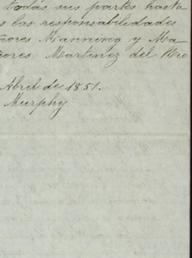 todas sus partes hasta
s las responsabilidades
ñores Manning y Ma-
ñores Martinez del Rio
Abril de 1851.
Murphy